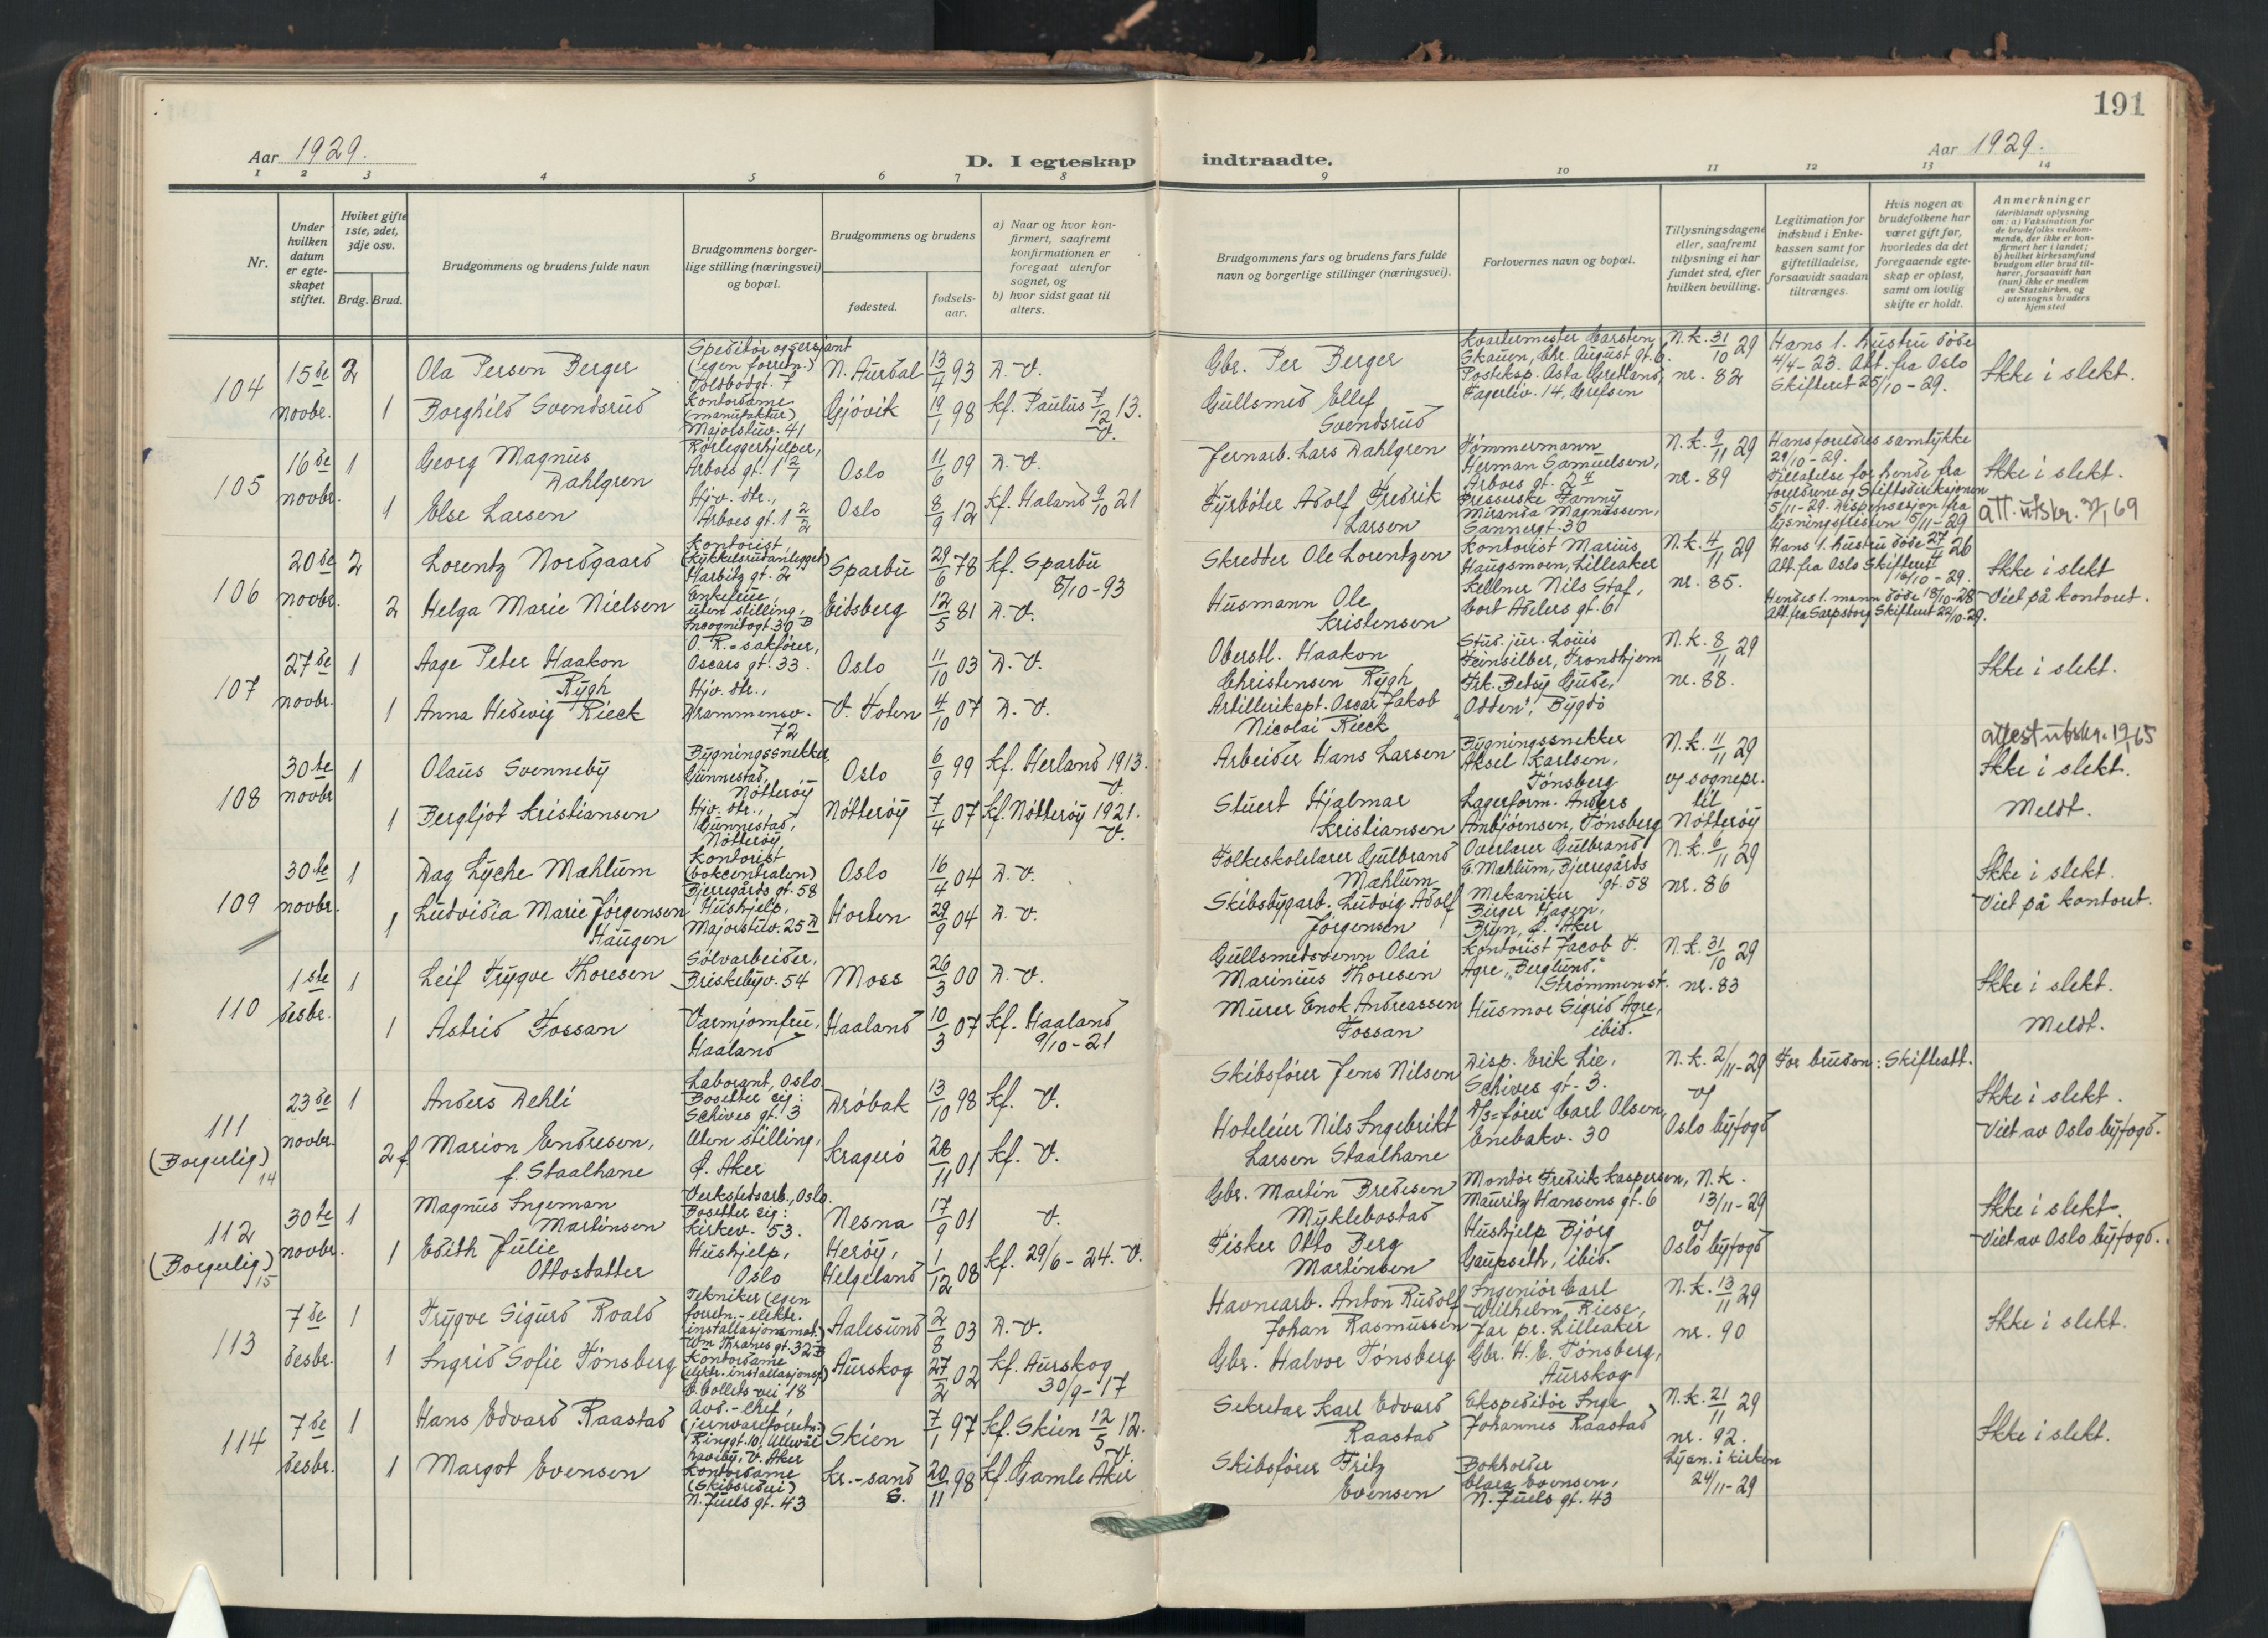 191
Aar 1929.
D. I egteskap indtraadte.
Aar 1929.
1 2 3 4 5 6 7 8 9 10 11 12 13 14
Nr.
Under hvilken datum er egteskapet stiftet.
Hvilket gifte 1ste, 2det, 3dje osv.
Brdg. Brud.
Brudgommens og brudens fulde navn
Brudgommens borgerlige stilling (næringsvei) og bopæl.
Brudgommens og brudens
fødested.
fødselsaar.
a) Naar og hvor konfirmert, saafremt konfirmationen er foregaat utenfor sognet, og
b) hvor sidst gaat til alters.
Brudgommens fars og brudens fars fulde navn og borgerlige stillinger (næringsvei).
Forlovernes navn og bopæl.
Tillysningsdagene eller, saafremt tillysning ei har fundet sted, efter hvilken bevilling.
Legitimation for indskud i Enkekassen samt for giftetilladelse, forsaavidt saadan tiltrænges.
Hvis nogen av brudefolkene har været gift før, hvorledes da det foregaaende egteskap er opløst, samt om lovlig skifte er holdt.
Anmerkninger (deriblandt oplysning om: a) Vaksination for de brudefolks vedkommende, der ikke er konfirmert her i landet; b) hvilket kirkesamfund brudgom eller brud tilhører, forsaavidt han (hun) ikke er medlem av Statskirken, og c) utensogns bruders hjemsted
104
15de novbr.
2
Ola Persen Berger
Speditør og sersjant (egen forretn.) Tolbodgt. 7
N. Aurdal
13/4 93
D. V.
Gbr. Per Berger
Kvartermester Carsten Skauen, Chr. August gt. 6.
N. k. 31/10 29
nr. 82
Hans 1. hustru døde 4/4-23. Att. fra Oslo Skifterett 25/10-29.
Ikke i slekt.
1
Borghild Svendsrud
Kontordame (manufaktur) Majorstuv. 41
Gjøvik
19/1 98
Kf. Paulus 7/12 13. V.
Gullsmed Ellef Svendsrud
Posteksp. Asta Gretland, Fagerliv. 14, Grefsen
105
16de novbr.
1
Georg Magnus Dahlgren
Rørleggerhjelper, Arboes gt. 1 2/1
Oslo
11/6 09
D. V.
Jernarb. Lars Dahlgren
Tømmermann Herman Samuelsen, Arboes gt. 2 4
N. k. 9/11 29
nr. 89
Hans foreldres samtykke 29/10-29.
Tillatelse for hende fra foreldrene og Stiftsdireksjonen 5/11-29. Dispensasjon fra lysningsfristen 15/11-29
Ikke i slekt.
att. utskr. 7/1 69
1
Else Larsen
Hjv. dtr., Arboes gt. 1 2/2
Oslo
8/9 12
Kf. Haland 9/10 21
Fyrbøter Adolf Fredrik Larsen
Presserske Fanny Miranda Magnussen, Sannergt. 30
106
20de novbr.
2
Lorentz Nordgaard
Kontorist (Rykkelsrudanlegget) Harbitz gt. 2
Sparbu
29/6 78
Kf. Sparbu 8/10-93
Skredder Ole Lorentzen
Kontorist Marius Haugsmoen, Lilleaker
N. k. 4/11 29
nr. 85.
Hans 1. hustru døde 27/4 26
Att. fra Oslo Skifterett 16/10-29.
Ikke i slekt
Viet på kontoret.
2
Helga Marie Nielsen
Enkefrue, uten stilling, Incognitogt. 30 B
Eidsberg
12/5 81
D. V.
Husmann Ole Kristensen
Kellner Nils Staf, Cort Adelers gt. 6
Hendes 1. mann døde 18/10-28
Att. fra Sarpsborg Skifterett 22/10-29.
107
27de novbr.
1
Aage Peter Haakon Rygh
O. R.=sakfører, Oscars gt. 33.
Oslo
11/10 03
D. V.
Oberstl. Haakon Christensen Rygh
Stud. jur. Louis Feinsilber, Trondhjem
N. k. 8/11 29
nr. 88.
Ikke i slekt.
1
Anna Hedevig Rieck
Hjv. dtr., Drammensv. 72
V. Toten
4/10 07
D. V.
Artillerikapt. Oscar Jakob Nicolai Rieck
Frk. Betsy Gude, "Odden", Bygdø
108
30te novbr
1
Olaus Svenneby
Bygningssnekker, Gunnestad, Nøtterøy
Oslo
6/9 99
Kf. Herland 1913. V.
Arbeider Hans Larsen
Bygningssnekker Aksel Karlsen, Tønsberg
N. k. 11/11 29
v/ sognepr. til Nøtterøy
attest utskr. 19/1 65
Ikke i slekt.
Meldt.
1
Bergljot Kristiansen
Hjv. dtr., Gunnestad, Nøtterøy
Nøtterøy
7/4 07
Kf. Nøtterøy 1921. V.
Stuert Hjalmar Kristiansen
Lagerform. Anders Anbjørnsen, Tønsberg
109
30te novbr.
1
Dag Lyche Mæhlum
Kontorist (bokcentralen) Bjerregårds gt. 58
Oslo
16/4 04
D. V.
Folkeskolelærer Gulbrand Mæhlum
Overlærer Gulbrand E. Mæhlum, Bjerregårds gt. 58
N. k. 6/11 29
nr. 86
Ikke i slekt.
Viet på kontoret.
1
Ludvidia Marie Jørgensen Haugen
Hushjelp, Majorstuv. 25 D
Horten
29/9 04
D. V.
Skibsbygarb. Ludvig Adolf Jørgensen
Mekaniker Birger Hagen, Bryn, Ø. Aker
110
1ste desbr.
1
Leif Trygve Thoresen
Sølvarbeider, Briskebyv. 54
Moss
26/3 00
D. V.
Gullsmedsvenn Olai Marinius Thoresen
Kontorist Jacob T. Agre, "Berglund," Strømmen st.
N. k. 31/10 29
nr. 83
Ikke i slekt.
Meldt.
1
Astrid Fossan
Varmjomfru, Haaland
Haaland
10/3 07
Kf. Haaland 9/10-21
Murer Enok Andreassen Fossan
Husmor Sigrid Agre, ibid.
111 (Borgerlig) 14
23de novbr.
1
Anders Dehli
Laborant, Oslo Bosetter sig: Schives gt. 3
Drøbak
13/10 98
Kf. V.
Skibsfører Jens Nilsen
Disp. Erik Lie, Schives gt. 3.
N. k. 2/11-29
v/ Oslo byfogd
For bruden: Skifteatt.
Ikke i slekt.
Viet av Oslo byfogd.
2 f.
Marion Endresen, f. Staalhane
Uten stilling, Ø. Aker
Kragerø
28/11 01
Kf. V.
Hoteleier Nils Ingebrikt Larsen Staalhane
D/s=fører Carl Olsen, Enebakv. 30
112 (Borgerlig) 15
30te novbr.
1
Magnus Ingeman Martinsen
Verkstedsarb., Oslo. Bosetter sig: Kirkev. 53.
Nesna
17/9 01
V.
Gbr. Martin Bredesen Myklebostad
Montør Fredrik Kaspersen, Mauritz Hansens gt. 6
N. k. 13/11-29
v/ Oslo byfogd
Ikke i slekt.
Viet av Oslo byfogd.
1
Edith Julie Ottosdatter
Hushjelp, Oslo
Herøy, Helgeland
1/12 08
Kf. 29/6-24. V.
Fisker Otto Berg Martinsen
Hushjelp Bjørg Gaupseth, ibid.
113
7de desbr.
1
Trygve Sigurd Roald
Tekniker (egen forretn.-elektr. installasjonsmat.) Wm Thranes gt. 32 B
Aalesund
2/8 03
D. V.
Havnearb. Anton Rudolf Johan Rasmussen
Ingeniør Carl Wilhelm Riese, Jar pr. Lilleaker
N. k. 13/11 29
nr. 90
Ikke i slekt.
1
Ingrid Sofie Tønsberg
Kontordame (elektr. installasjonsf.) C. Collets vei 18
Aurskog
27/2 02
Kf. Aurskog 30/9-17
Gbr. Halvor Tønsberg
Gbr. H. E. Tønsberg, Aurskog
114
7de desbr.
1
Hans Edvard Raastad
Avd.-chef, (jernvareforretn.) Ringgt. 10, Ullevål haveby, V. Aker
Skien
7/1 97
Kf. Skien 12/5 12. V.
Sekretær Karl Edvard Raastad
Ekspeditør Inge Johannes Raastad
N. k. 21/11 29
nr. 92.
Lysn. i kirken 24/11-29
Ikke i slekt.
1
Margot Evensen
Kontordame (Skibsrederi) N. Juels gt. 43
Kr.-sand S.
20/11 98
Kf. Gamle Aker
Skibsfører Fritz Evensen
Bokholder Clara Evensen, N. Juels gt. 43